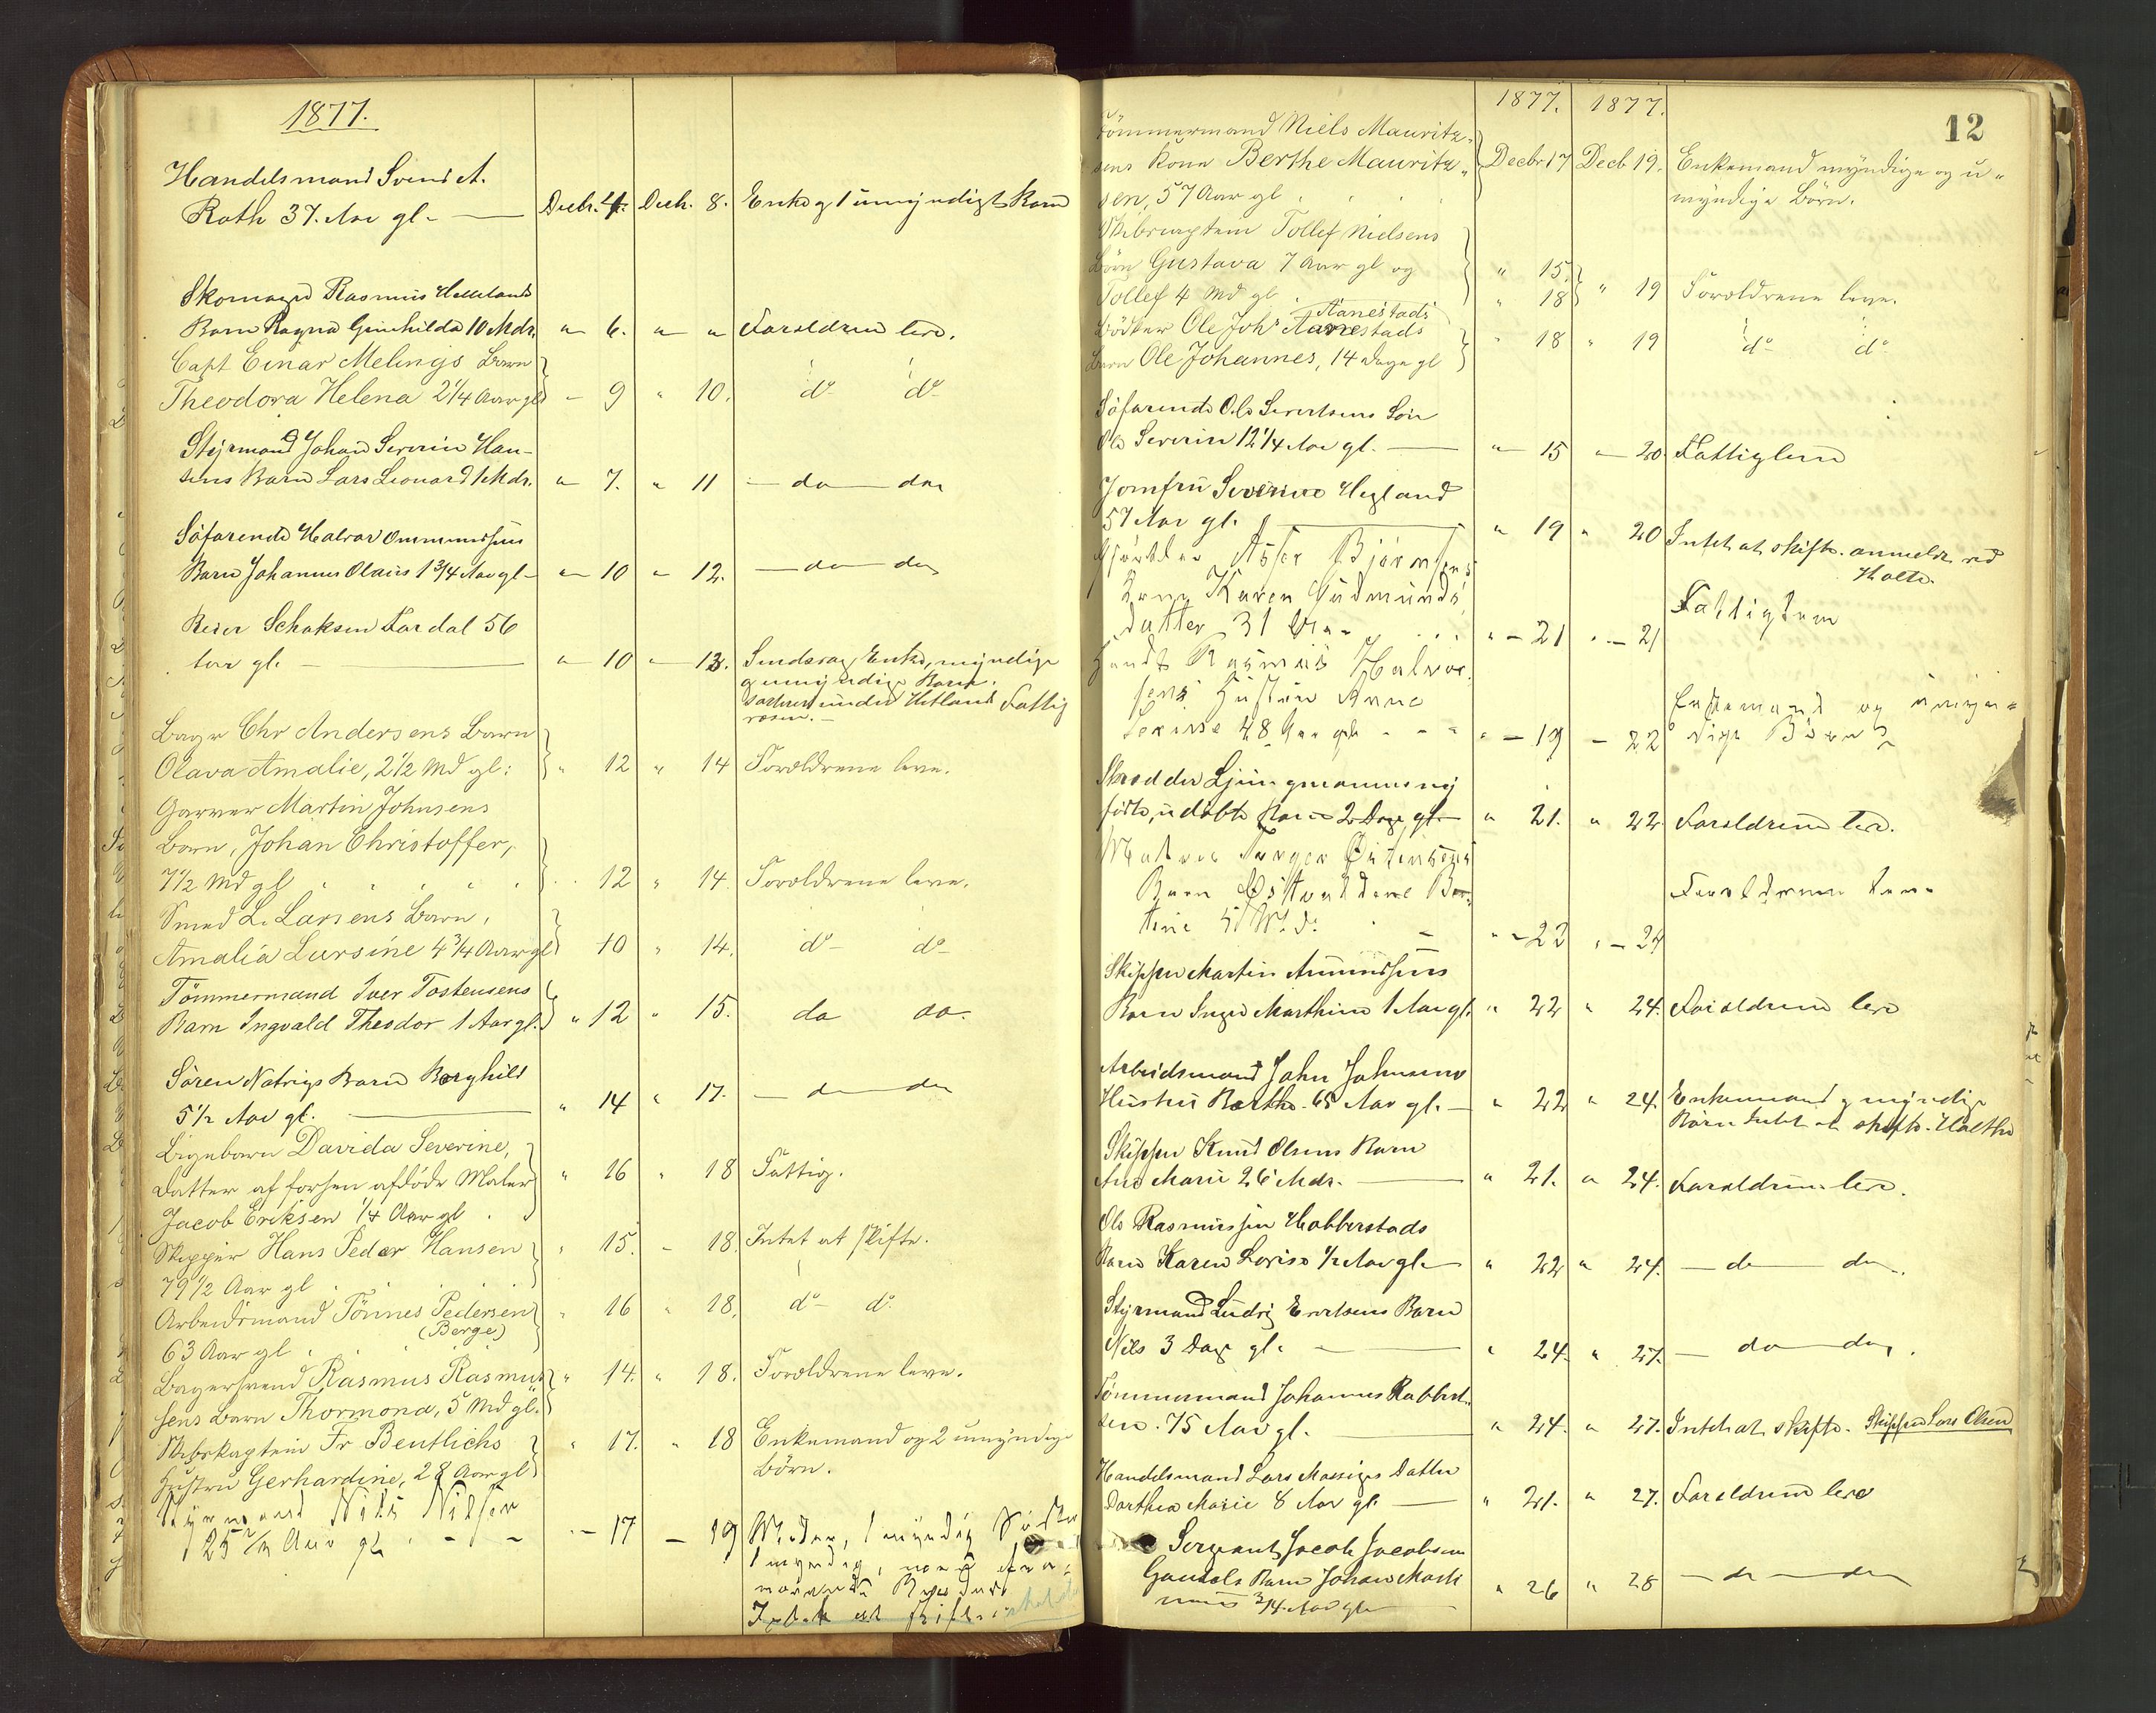 1877.
Handelsmand Svend A.
Roth 37. Aar gl. — Decbr. 4. Decbr. 8. Enke og 1 umyndigt Barn
Skomager Rasmus Hellelands
Barn Ragna Gunhilda 10 Mdr. " 6. " " Forældrene leve.
Capt Einar Melings Barn
Theodora Helena 2 1/4 Aar gl " 9 " 10. do do
Styrmand Johan Severin Han-
sens Barn Lars Leonard 1 Mdr. " 7. " 11 — do — do
Söfarende Halvor Ommundsens
Barn Johannes Olaus 1 3/4 Aar gl — " 10 " 12. — do — do
Reier Schaksen Fardal 56
Aar gl. — " 10 " 13. Sindssvag, Enke, myndige
og umyndige Børn.
sorterer under Hetland Fattig
væsen. —
Bager Chr Andersens Barn
Olava Amalie, 2 1/2 Md gl: " 12 " 14 Forældrene leve.
Garver Martin Johnsens
Barn, Johan Christoffer,
7 1/2 Md gl " 12 " 14. Forældrene leve.
Smed L. Larsens Barn,
Amalia Lursine 4 3/4 Aar gl 10 " 14. do do
Tömmermand Iver Tostensens
Barn Ingvald Theodor 1 Aar gl. " 12 " 15. do do.
Sören Natvigs Barn Borghild
5 1/2 Aar gl. — " 14 " 17. — do do
Pigebarn Davida Severine,
Datter af forhen afdöde Maler
Jacob Eriksen 1/4 Aar gl " 16 " 18 Fattig.
Skipper Hans Peder Hansen
79 1/2 Aar gl " 15. — 18. Intet at skifte.
Arbeidsmand Tönnes Pedersen
(Berge)
63 Aar gl " 16 " 18. do do
Bagersvend Rasmus Rasmus
sens Barn Thormona, 5 Md gl. " 14. " 18. Forældrene leve.
Skibskaptein Fr Bentlichs
Hustru Gerhardine, 28 Aar gl " 17. " 18 Enkemand og 2 umyndige
Börn.
Styrmand Nils Nilsen
25 Aar gl — — 17 — 19 Moder, 1 myndig Søster
1 myndig,
Intet at skifte.
1877. 1877. 12
Tömmermand Niels Mauritz-
sens Kone Berthe Mauritz- Decbr 17 Decb 19. Enkemand myndige og u-
sen, 57 Aar gl myndige Börn.
Skibscaptein Tollef Nielsens
Börn Gustava 7 Aar gl og " 15.
Tollef 4 Md gl " 18 " 19 Forældrene leve.
Aanestads
Bödker Ole Johs Aanestads
Barn Ole Johannes, 14 Dage gl " 18 " 19 do do
Söfarende Ole Sivertsens Sön
Ole Severin 12 1/4 Aar gl. — " 15 " 20. Fattiglem
Jomfru Severine Hegland
57 Aar gl. — " 19 " 20 Intet at skifte. anmeldr ved
Holte.
Asser Björnsens
Kone Karen Gudmunds
datter 31 Aar " — 21 " — 21 Fattiglem
Rasmus Halvor
sens Hustru Anne
48 Aar gl — — " — 19 — 22 Enkemand og umyn-
dige Börn
Skrædder Ljungmanns ny
födte, udöbte Barn 2 Dage gl. — " 21. " 22. Forældrene leve.
Matros Torger Östensens
Barn
tine 5 Md. — " — 22 " — 24 Forældrene leve
Skipper Martin Amundsens
Barn Inger Marthine 1 Aar gl. " 22 " 24. Forældrene leve
Arbeidsmand John Johnsens
Hustru Berthe. 65 Aar gl. — " 22 " 24. Enkemand og myndige
Börn Intet at skifte. Holthe
Skipper Knud Olsens Barn
Ane Marie 26 Mdr. — " 21. " 24. Forældrene leve.
Ole Rasmussen Hobberstads
Barn Karen Lovise 1/2 Aar gl — " 22 " 24. — do — do
Styrmand Ludvig Evertsens Barn
Nils 3 Dage gl. — " 24. " 27. — do — do.
Tömmermand Johannes Robbert-
sen. 75 Aar gl. — " 24. " 27. Intet at skifte. Skipper Lars Olsen
Handelsmand Lars Massiges Datter
Dorthea Marie 8 Aar gl. — " 21. " 27. Forældrene leve
Sergeant Jacob Jacobsen
Gausels Barn Johan Mart
inius 3/4 Aar gl. — " 26 " 28 — do — do